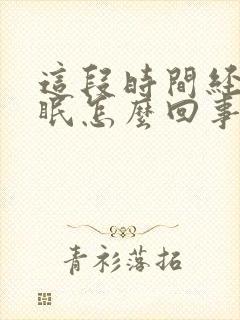 這段時間經
眠怎麼回事
青衫落拓